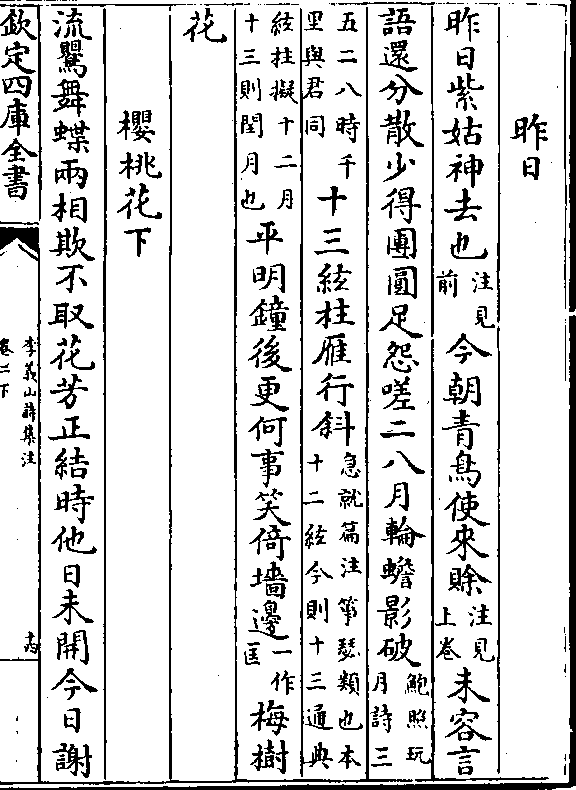 昨日
昨日紫姑神去也注見前今朝青鳥使來賖注見上卷未容言
語還分散少得團圓足怨嗟二八月輪蟾影破鮑照玩月詩三
五二八時千里與君同十三絃柱雁行斜急就篇注箏瑟類也本十二絃今則十三通典
絃柱擬十二月十三則閏月也平明鐘後更何事笑倚墻邊一作匡梅樹
花
櫻桃花下
流鶯舞蝶兩相欺不取花芳正結時他日未開今日謝
欽定四庫全書
李義山詩集注
卷二下